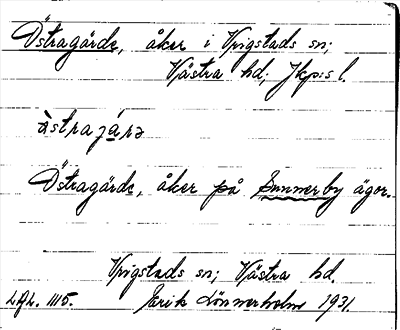 Östragärde, åker i Vrigstads sn;
Västra hd; Jkps l.
Östragärde, åker på Sunnerby ägor.
Vrigstads sn; Västra hd.
Erik Lönnerholm 1931.